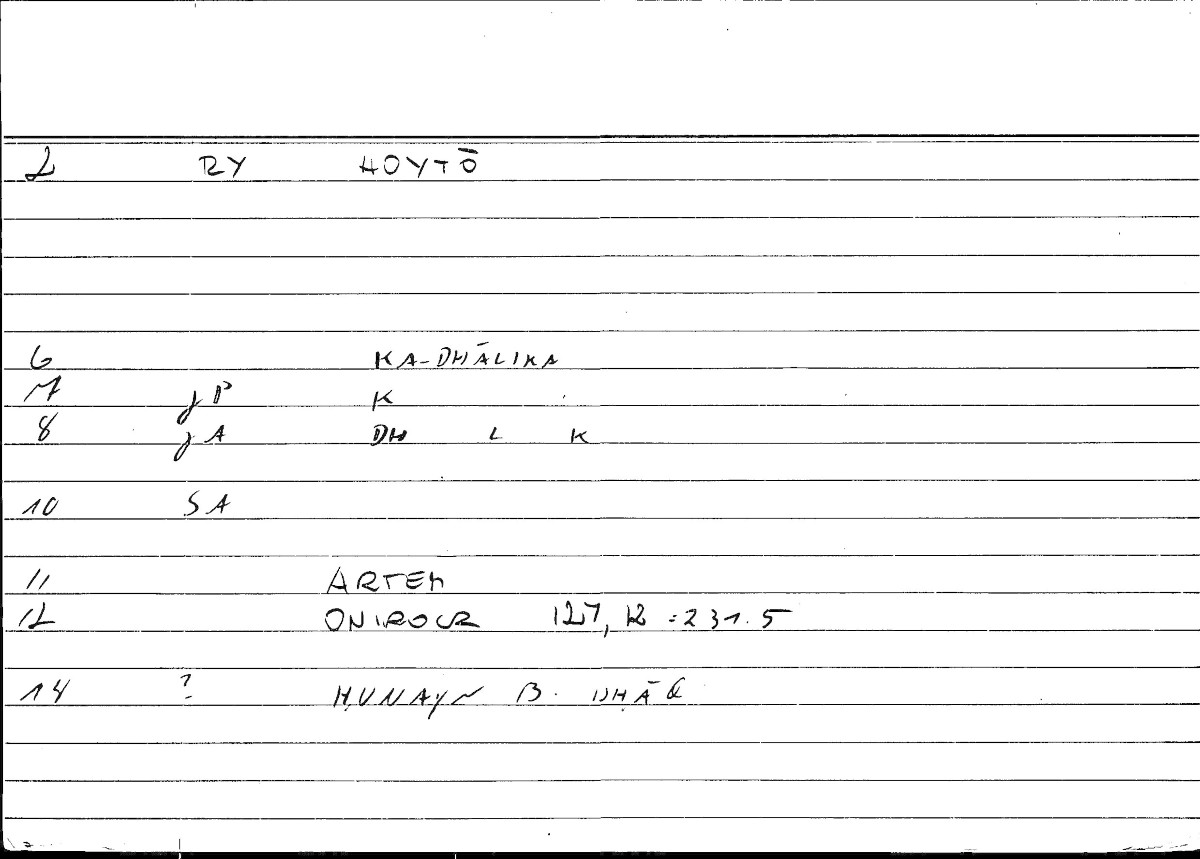 2 RY HOYTŌ
6 KA-DHĀLIKA
7 JP K
8 JA DH L K
10 SA
11 ARTEM
12 ONIROCR 127, 12 = 231.5
14 ? ḤUNAYN B.